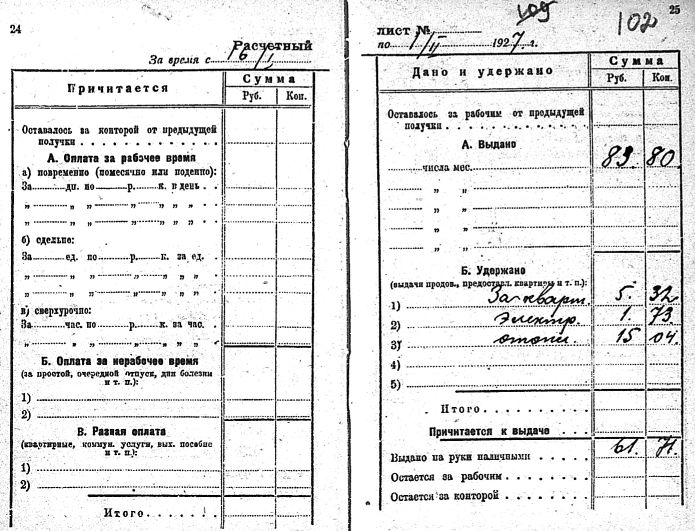 24
Расчетный
За время с 16/I
Причитается
Сумма
Руб. Коп.
Оставалось за конторой от предыдущей
получки
А. Оплата за рабочее время
а) повременно (помесячно или поденно):
За дн. по р. к. в день
„ „ „ „ „ „
„ „ „ „ „ „
б) сдельно:
За ед. по р. к. за ед.
„ „ „ „ „ „
„ „ „ „ „ „
в) сверхурочно:
За час. по р. к. за час.
„ „ „ „ „ „
Б. Оплата за нерабочее время
(за простой, очередной отпуск, дни болезни
и т. п.):
1)
2)
В. Разная оплата
(квартирные, коммун. услуги, вых. пособие
и т. п.):
1)
2)
Итого
109
25
102
лист №
по 1/II 1927 г.
Дано и удержано
Сумма
Руб. Коп.
Оставалось за рабочим от предыдущей
получки
А. Выдано
числа мес. 83. 80.
„ „
„ „
„ „
„ „
Б. Удержано
(выдачи продов., предоставл. квартиры и т. п.):
1) За кварт. 5. 32
2) Электр. 1. 73
3) отопл. 15 04.
4)
5)
Итого
Причитается к выдаче
Выдано на руки наличными 61. 71.
Остается за рабочим
Остается за конторой